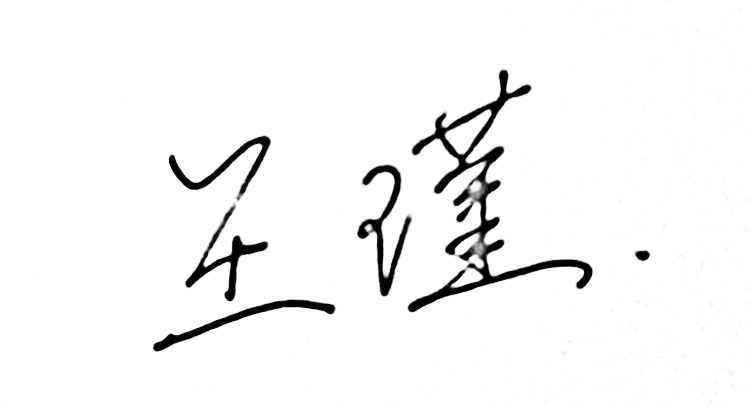 王瑾.